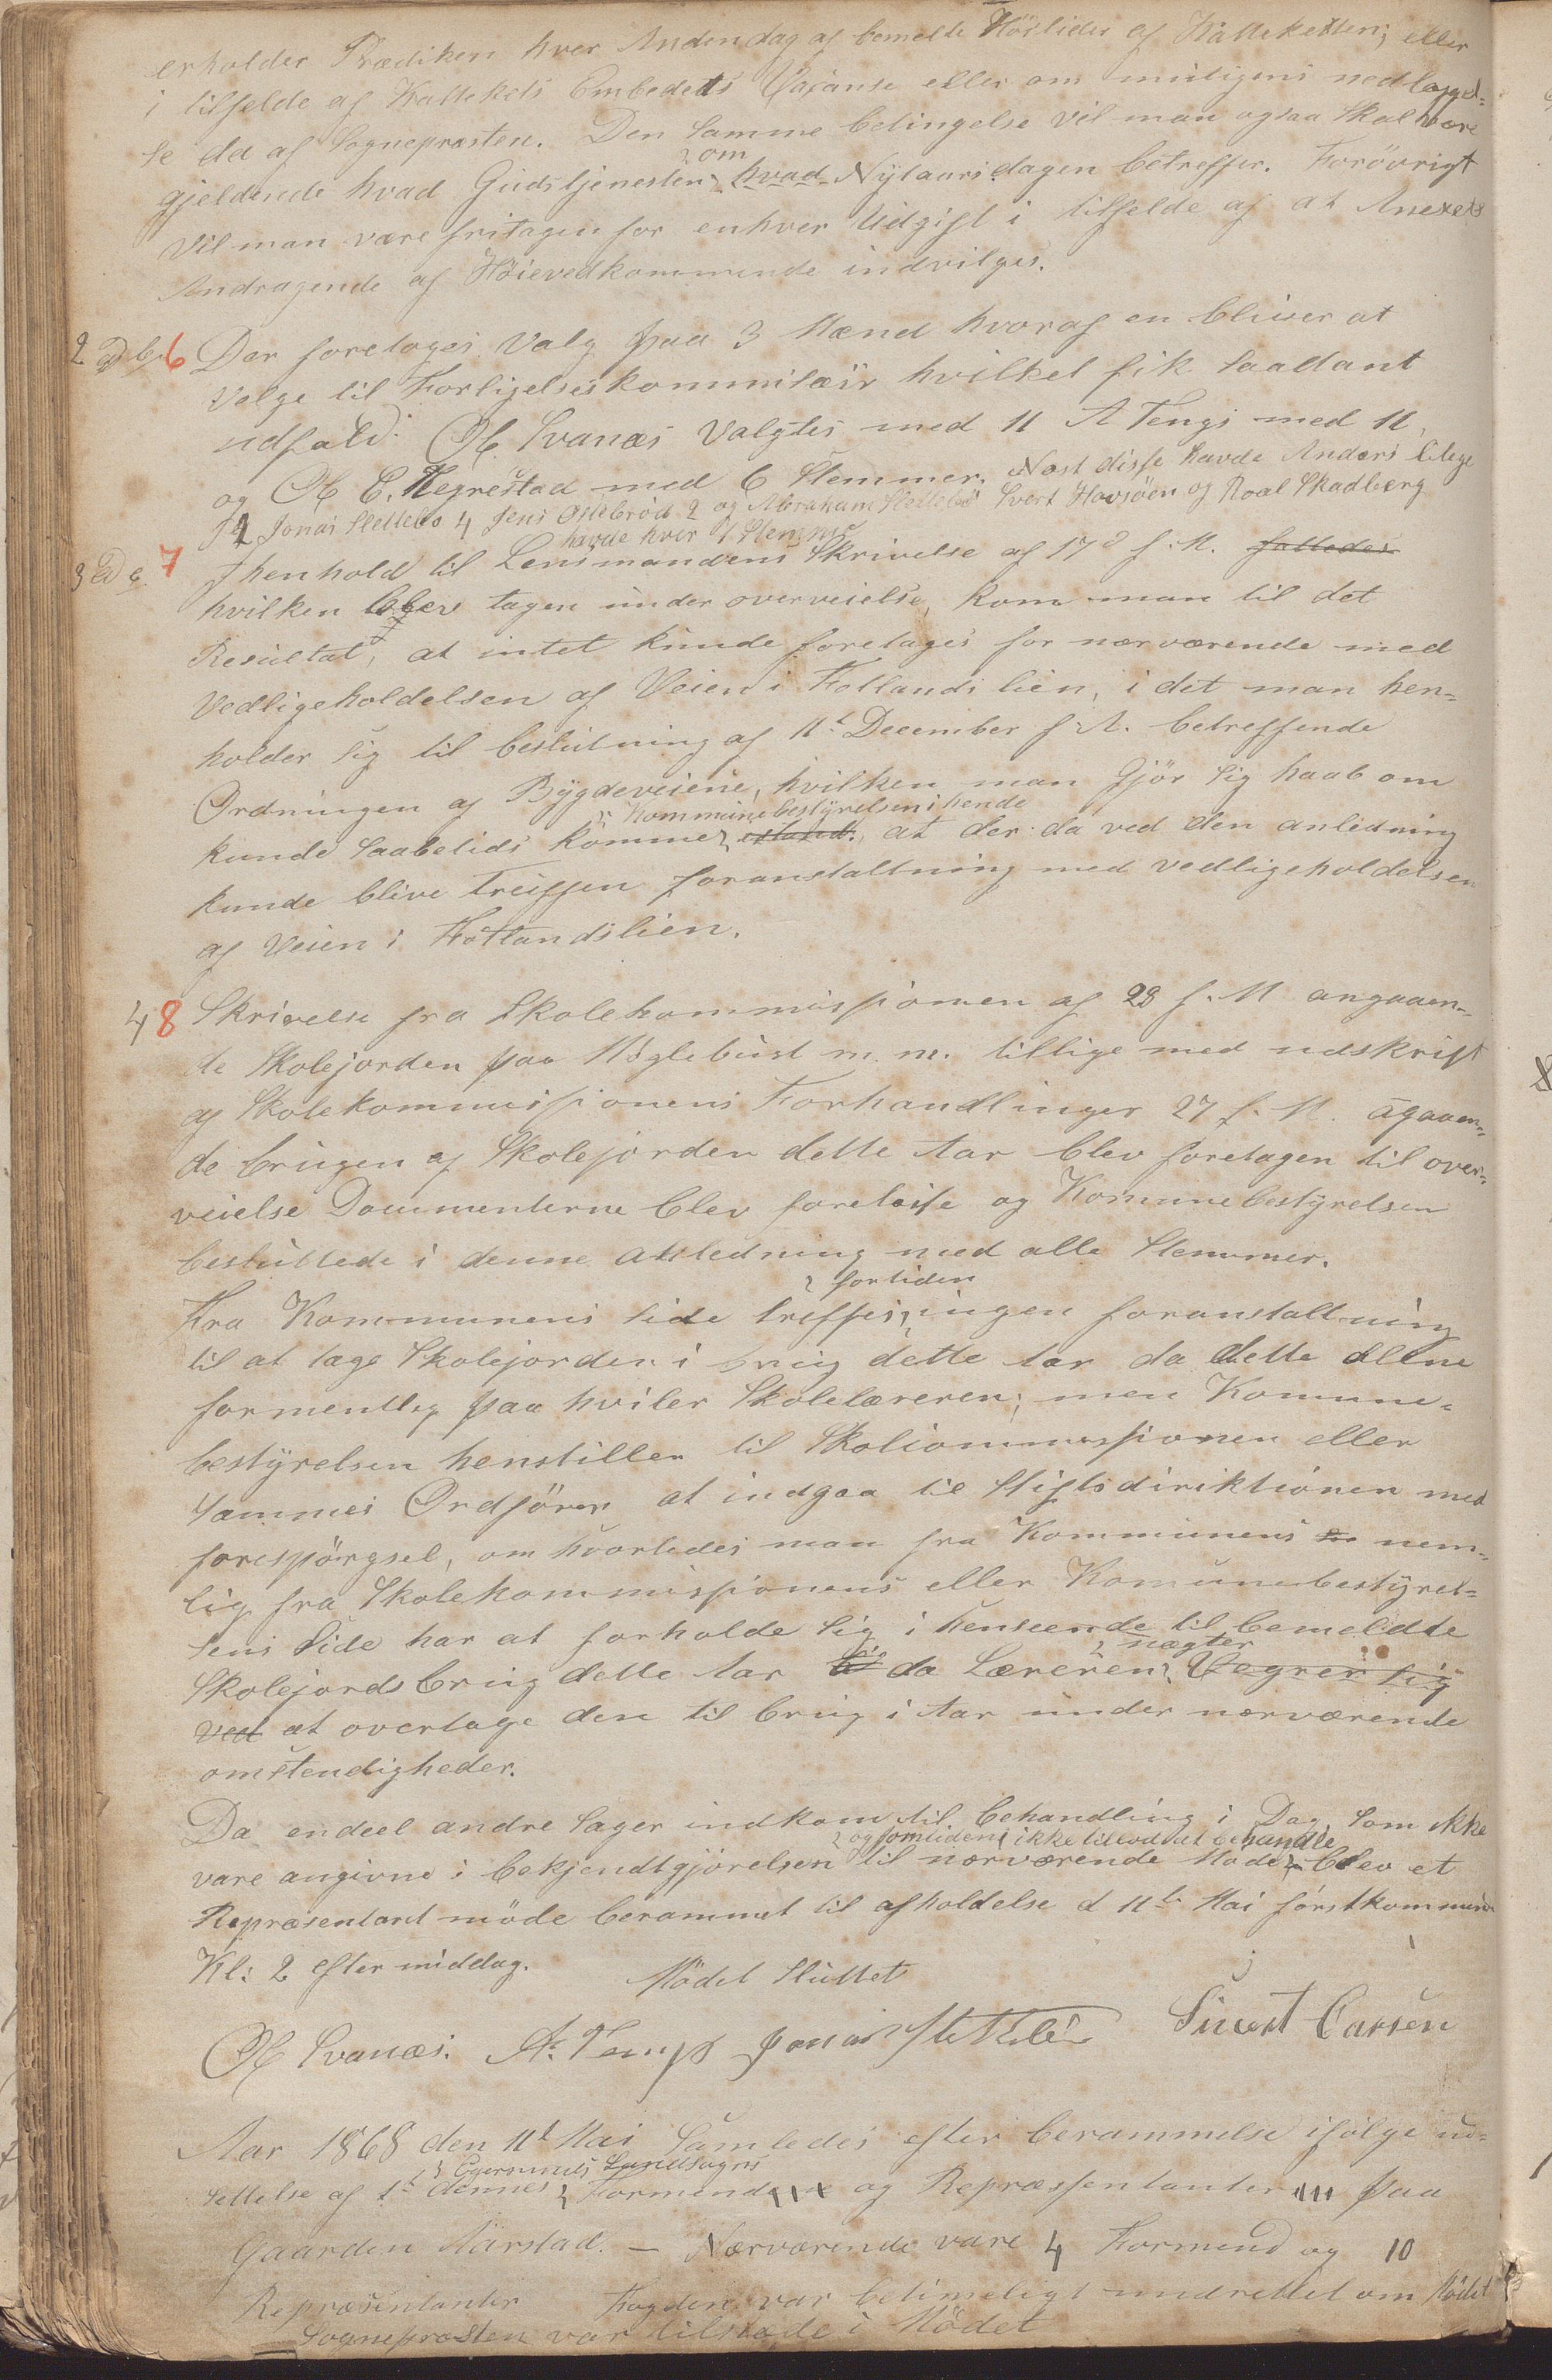 erholder Prædiken hver Anden dag af bemelte Høitider af Katteketten; eller
i tilfelde af Kattekets Embedets Vacanse eller om muligens nedlæggel-
se da af Sognepræsten. Den samme betingelse vil man ogsaa skal være
gjeldende hvad Gudstjenesten om hvad Nytaarsdagen betreffer. Forøvrigt
vil man være fritagen for enhver Udgift i tilfelde af at Anexets
Andragende af Høievedkommende indvilges.
2 ad b. 6 Der foretoges Valg paa 3 Mænd hvoraf en bliver at
velge til Forligelseskommisær hvilket fik saadant
udfald: Ol. Svanæs Valgtes med 11 A Tengs med 11,
og Ol. E. Hegrestad med 6 Stemmer. Næst disse havde Anders Lilege
4 Jonas Slettebø 4 Jens Ollebrød 2 og Abraham Slettebø Svert Hovsøen og Roal Skadberg
havde hver 1 Stemme
3 ad c. 7 I henhold til Lensmandens Skrivelse af 17d f. M. fattedes
hvilken blev tagen under overveielse, kom man til det
Resultat, at intet kunde foretages for nærværende med
Vedligeholdelsen af Veien i Fotlandslien, i det man hen-
holder sig til beslutning af 11t December f A. betreffende
Ordningen af Bygdeveiene, hvilken man Gjør sig haab om
Kommunebestyrelsen i hende
kunde saabetids komme istand, at der da ved den anledning
kunde blive Treffen foranstaltning med vedligeholdelsen
af Veien i Fotlandslien.
4 8 Skrivelse fra Skolekommissionen af 28 f. M angaaen-
de Skolejorden paa Møglebust m. m. tillige med udskrift
af Skolekommissionens Forhandlinger 27 f. M. agaaen-
de brugen af Skolejorden dette Aar blev foretagen til over-
veielse Documenterne blev foreleste og Komunebestyrelsen
besluttede i denne anledning med alle Stemmer.
fortiden
Fra Kommunens side treffes ingen foranstaltning
til at tage Skolejorden i brug dette Aar da dette allene
formentlig paa hviler Skolelæreren; men Komune-
bestyrelsen henstiller til Skolecommissionen eller
sammes Ordfører at indgaa til Stiftsdirektionen med
forespørgsel, om hvorledes man fra Kommunens nem-
lig fra Skolekommissionens eller Komunebestyrel-
sens Side har at forholde sig i henseende til bemeldte
nægter
Skolejords brug dette Aar da Læreren Vegrer sig
ved at overtage den til brug i Aar under nærværende
omstendigheder.
Da endeel andre Sager indkom til behandling i Dag som ikke
og som tidens ikke tillod at behandle
vare angivne i bekjendtgjørelsen til nærværende Møde blev et
Repræsentant møde berammet til afholdelse d 11te Mai førstkommende
Kl: 2 efter middag. Mødet Sluttet
Ol Svanæs. A. Tengs Jonas Slettebø Sivert Carsen
Aar 1868 den 11t Mai Samledes efter berammelse ifølge ud-
Egersunds Landsogns
settelse af 1t dennes Formend og Repræssentanter paa
Gaarden Aarstad. – Nærværende vare 4 Formend og 10
Repræsentanter Fogden var betimeligt underrettet om Mødet
Sognepræsten var tilstæde i Mødet